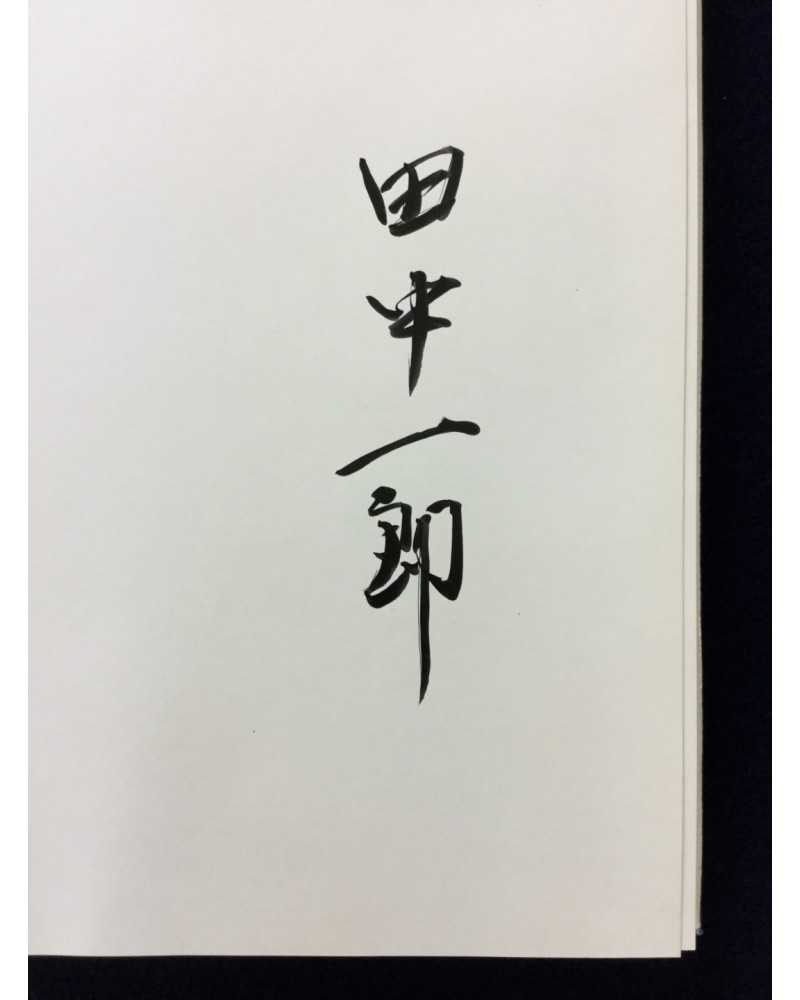 田中一郎